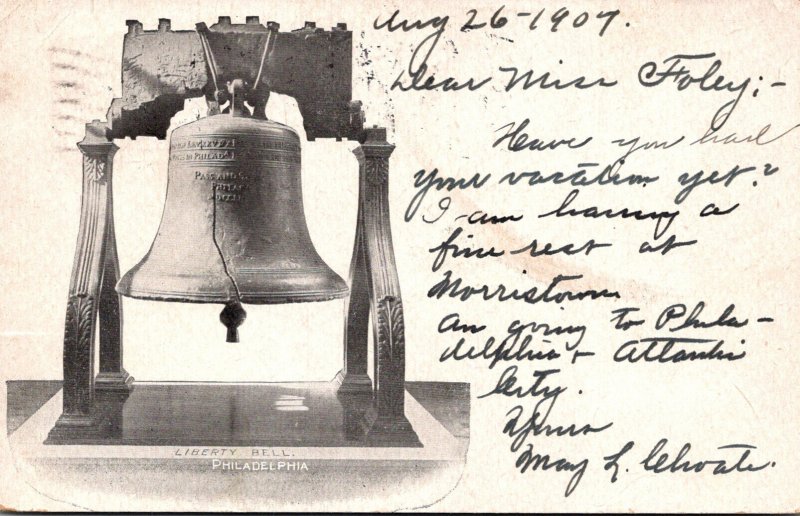 Aug 26-1907.
Dear Miss Foley;-
Have you had
your vacation yet?
I am having a
fine rest at
Morristown
am going to Phila-
delphia + Atlantic
City.
Yours
May L. Choate.
PASS AND S
PHILA
LIBERTY BELL.
PHILADELPHIA